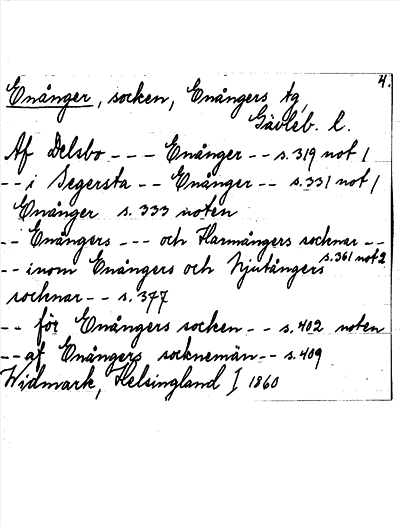 4.
Enånger, socken, Enångers tg,
Gävleb. l.
Af Delsbo --- Enånger -- s. 319 not 1
-- i Segersta -- Enånger -- s. 331 not 1
Enånger s. 333 noten
-- Enångers --- och Harmångers socknar --
s. 361 not 2
-- inom Enångers och Njutångers
socknar -- s. 377
-- för Enångers socken -- s. 402 noten
-- af Enångers socknemän -- s. 409
Widmark, Helsingland I 1860